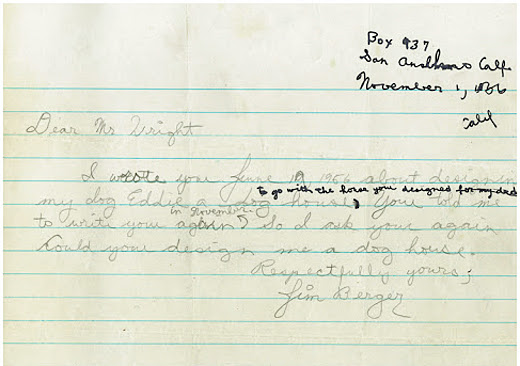 Box 937
San Anselmo Calf
November 1, 1956
Calif
Dear Mr Wright
I wrote you June 19, 1956 about designing
to go with the house you designed for my dad
my dog Eddie a dog house, You told me
in November
to write you again, So I ask you again
Could you design me a dog house.
Respectfully yours,
Jim Berger